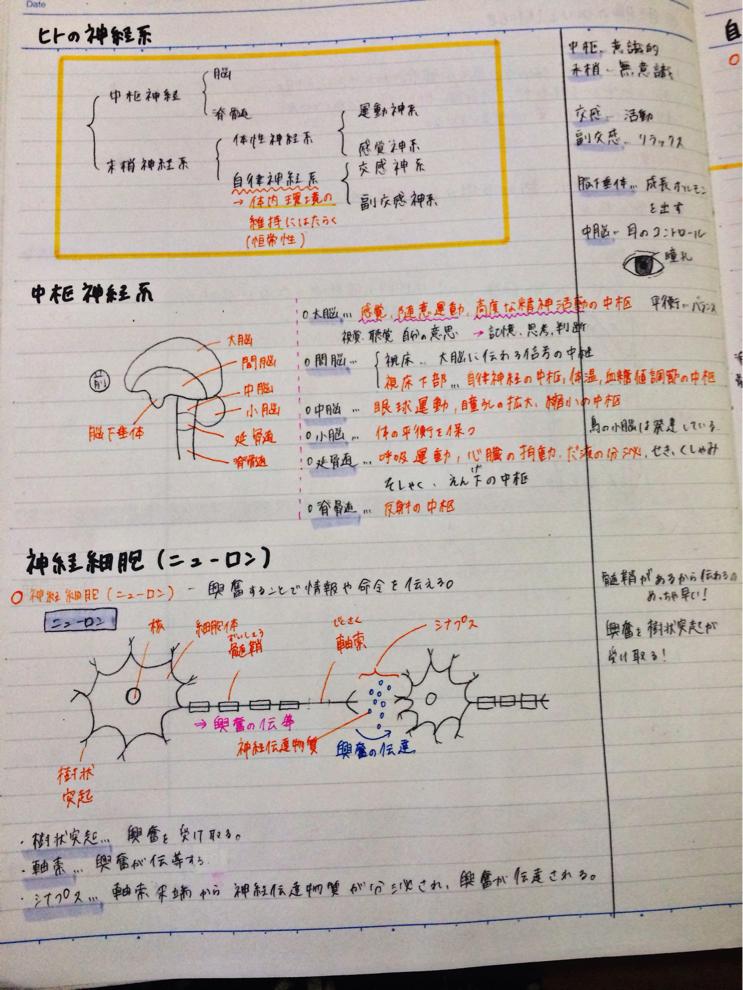 Date
ヒトの神経系
中枢神経
脳
脊髄
末梢神経系
体性神経系
運動神系
感覚神系
自律神経系
交感神系
副交感神系
→ 体内環境の
維持にはたらく
(恒常性)
中枢… 意識的
末梢… 無意識
交感… 活動
副交感… リラックス
脳下垂体… 成長ホルモン
を出す
中脳… 目のコントロール
瞳孔
自
中枢神経系
前
大脳
間脳
中脳
小脳
延骨遀
脊骨遀
脳下垂体
○大脳… 感覚, 随意運動, 高度な精神活動の中枢
平衡… バランス
視覚・聴覚 自分の意思 → 記憶、思考、判断
○間脳… 視床… 大脳に伝わる信号の中継
視床下部… 自律神経の中枢, 体温, 血糖値調節の中枢
○中脳… 眼球運動, 瞳孔の拡大、縮小の中枢
○小脳… 体の平衡を保つ
鳥の小脳は発達している
○延髄… 呼吸運動, 心臓の拍動, だ液の分泌, せき、くしゃみ
そしゃく、えん下の中枢
げ
○脊髄… 反射の中枢
神経細胞(ニューロン)
○ 神経細胞(ニューロン) - 興奮することで情報や命令を伝える。
ニューロン
核
細胞体
ずいしょう
髄鞘
じくさく
軸索
シナプス
→ 興奮の伝導
神経伝達物質
興奮の伝達
樹状
突起
髄鞘があるから伝わるの
めっちゃ早い!
興奮を樹状突起が
受け取る!
・樹状突起… 興奮を受け取る。
・軸索… 興奮が伝導する.
・シナプス… 軸索末端から神経伝達物質が分泌され、興奮が伝達される。